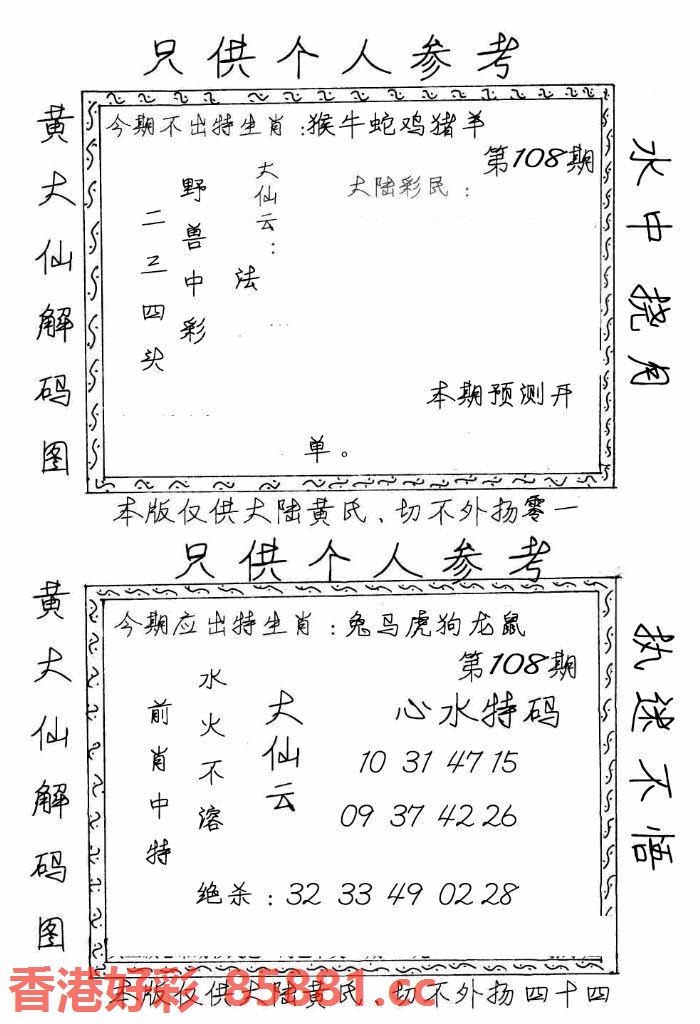 只供个人参考
黄大仙解码图
今期不出特生肖：猴牛蛇鸡猪羊
第108期
大陆彩民：
大仙云：
法
野兽中彩
二三四头
本期预测开
单。
水中挠月
本版仅供大陆黄氏、切不外扬零一
只供个人参考
黄大仙解码图
今期应出特生肖：兔马虎狗龙鼠
第108期
心水特码
10 31 47 15
09 37 42 26
大仙云
水火不溶
前肖中特
绝杀：32 33 49 02 28
执迷不悟
香港好彩 85881.cc
本版仅供大陆黄氏、切不外扬四十四